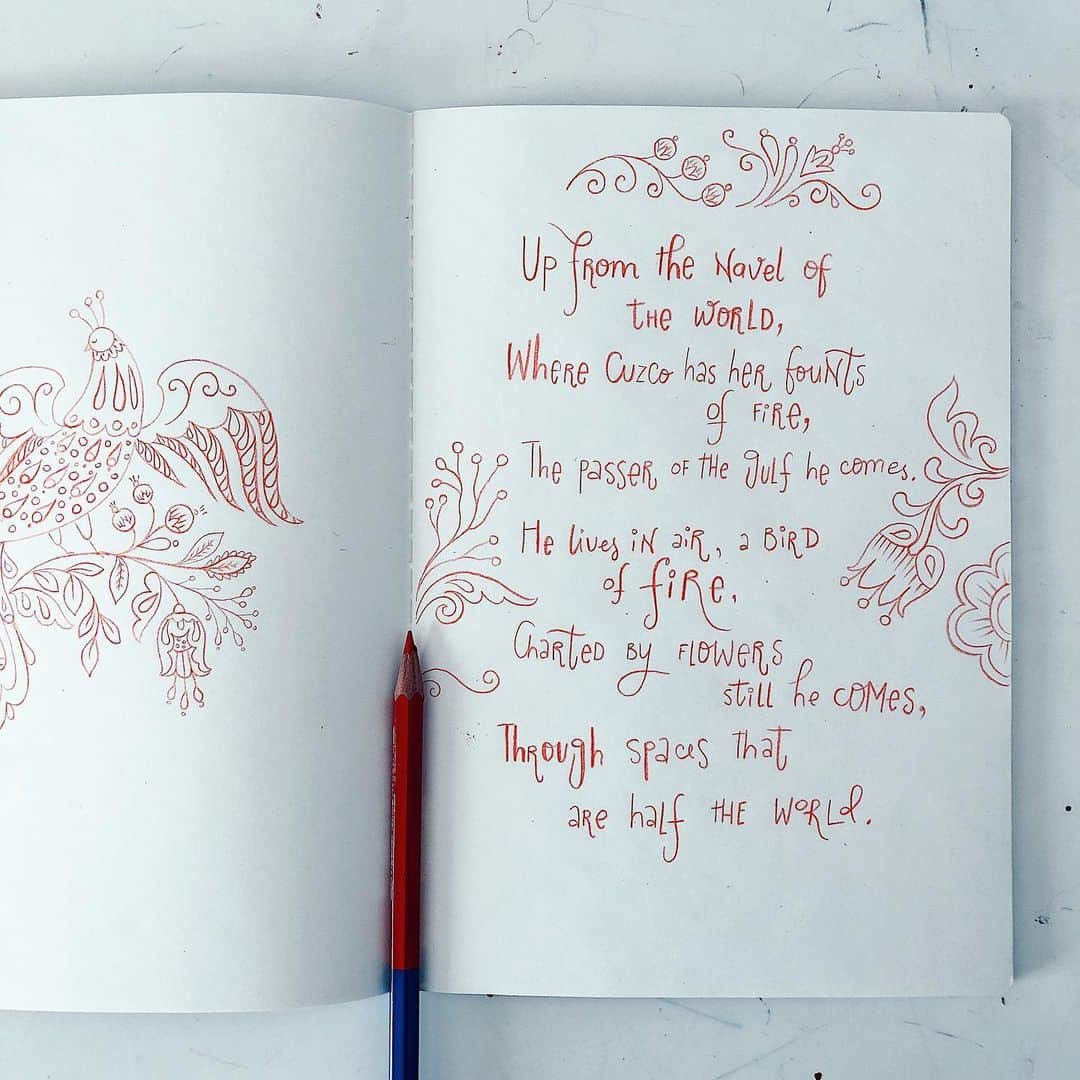 Up from the Navel of
the World,
Where Cuzco has her founts
of fire,
The passer of the gulf he comes.
He lives in air, a bird
of fire.
Charted by flowers
still he comes,
Through spaces that
are half the world.